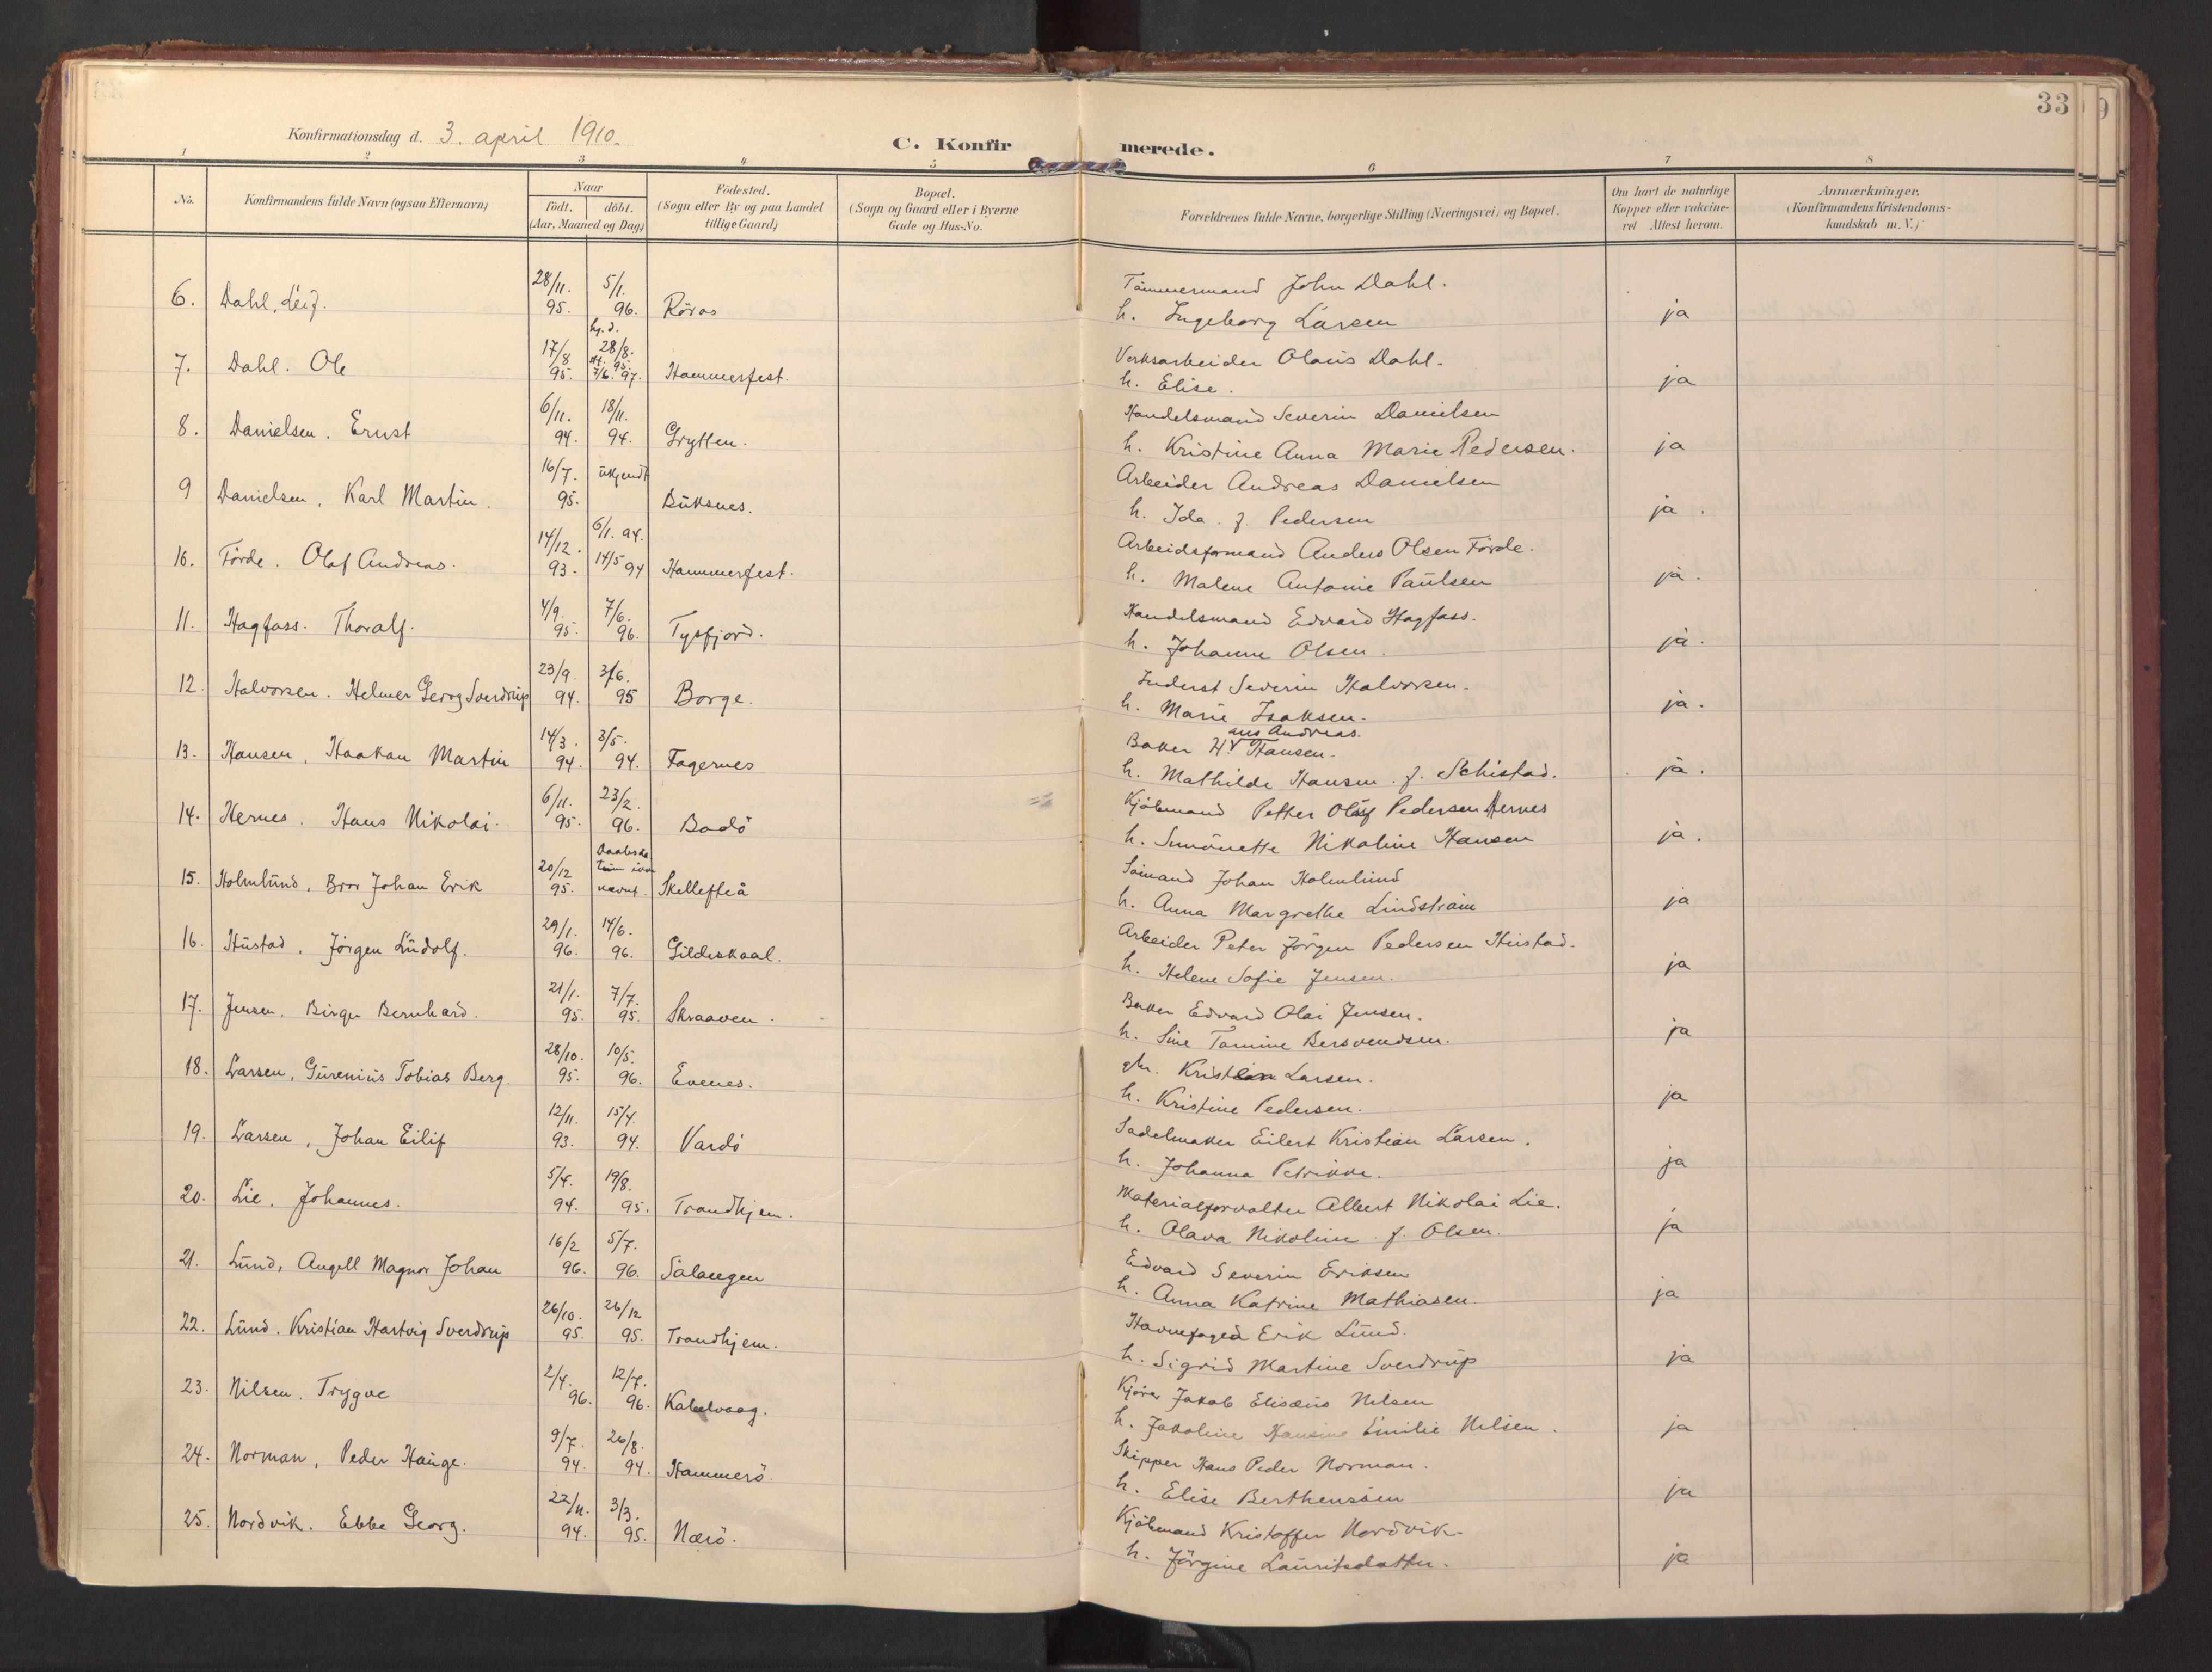 33
Konfirmationsdag d. 3. april 1910.
C. Konfirmerede.
1 2 3 4 5 6 7 8
No.
Konfirmandens fulde Navn (ogsaa Efternavn)
Naar
födt. döbt.
(Aar, Maaned og Dag)
Födested.
(Sogn eller By og paa Landet
tillige Gaard)
Bopæl.
(Sogn og Gaard eller i Byerne
Gade og Hus-No.
Forældrenes fulde Navne, borgerlige Stilling (Næringsvei) og Bopæl.
Om havt de naturlige
Kopper eller vakcine-
ret Attest herom.
Anmærkninger.
(Konfirmandens Kristendoms-
kundskab m. V.)
6. Dahl, Leif. 28/11. 95. 5/1. 96. Röros Tömmermand John Dahl. ja
h. Ingeborg Larsen
7. Dahl. Ole 17/8 95. hj. d. 28/8. 95. st. 7/6. 97. Hammerfest. Verksarbeider Olaus Dahl. ja
h. Elise.
8. Danielsen. Ernst 6/11. 94. 18/11. 94. Grytten. Handelsmand Severin Danielsen ja
h. Kristine Anna Marie Pedersen.
9 Danielsen, Karl Martin. 16/7. 95. ukjendt Buksnes. Arbeider Andreas Danielsen ja.
h. Ida. f. Pedersen
10. Förde. Olaf Andreas. 14/12. 93. 6/1. 94. 14/5 94 Hammerfest. Arbeidsformand Anders Olsen Förde. ja.
h. Malene Antonie Paulsen
11. Hagfass. Thoralf. 4/9. 95. 7/6. 96. Tysfjord. Handelsmand Edvard Hagfass. ja.
h. Johanne Olsen.
12. Halvorsen. Helmer Georg Sverdrup 23/9. 94. 3/6. 95 Borge. Inderst Severin Halvorsen. ja.
h. Marie Isaksen.
13. Hansen, Haakon Martin 14/3. 94. 3/5. 94. Fagernes Baker Hansen. ja.
h. Mathilde Hansen. f. Schistad.
14. Hernes. Hans Nikolai. 6/11. 95. 23/2. 96. Bodö Kjöbmand Petter Olaf Pedersen Hernes ja.
h. Simonette Nikoline Hansen
15. Holmlund, Bror Johan Erik 20/12 95. Skellefteå Sömand Johan Holmlund ja
h. Anna Margrethe Lindström
16. Hustad, Jörgen Ludolf. 29/1. 96. 14/6. 96. Gildeskaal. Arbeider Peter Jörgen Pedersen Hustad. ja
h. Helene Sofie Jensen.
17. Jensen, Birger Bernhard. 21/1. 95. 7/7. 95. Skraaven. Baker Edvard Olai Jensen. ja
h. Sine Tomine Bersvendsen.
18. Larsen, Gurenius Tobias Berg. 28/10. 95. 10/5. 96. Evenes. Kristian Larsen. ja
h. Kristine Pedersen.
19. Larsen, Johan Eilif 12/11. 93. 15/4. 94. Vardö Sadelmaker Eilert Kristian Larsen. ja
h. Johanna Petrikke.
20. Lie, Johannes. 5/4. 94. 19/8. 95. Trondhjem. Materialforvalter Albert Nikolai Lie. ja
h. Olava Nikoline f. Olsen.
21. Lund, Angell Magnor Johan 16/2 96. 5/7. 96. Salangen Edvard Severin Eriksen ja
h. Anna Katrine Mathiasen.
22. Lund. Kristian Hartvig Sverdrup 26/10. 95 26/12 95. Trondhjem. Havnefoged Erik Lund. ja
h. Sigrid Martine Sverdrup
23. Nilsen. Trygve 2/4. 96. 12/7. 96. Kabelvaag. Jakob Elisæus Nilsen ja
h. Jakoline Hansine Emilie Nilsen.
24. Norman, Peder Hauge. 9/7. 94. 26/8. 94. Hammerö. Skipper Hans Peder Norman. ja
h. Elise Berthenssen
25. Nordvik. Ebbe Georg. 22/11. 94. 3/3. 95. Nærö. Kjöbmand Kristoffer Nordvik. ja
h. Jörgine Lauritsdatter.